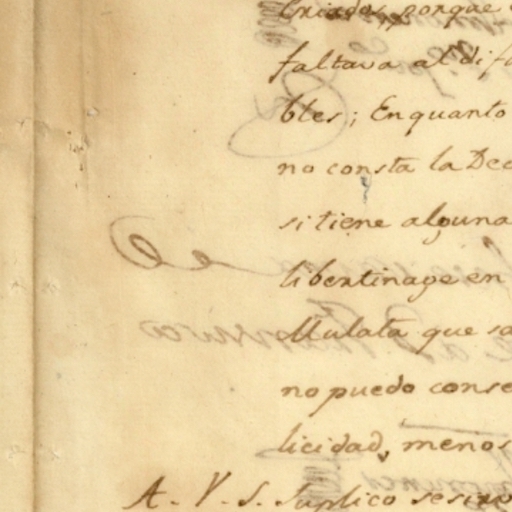 Criados, porque
faltava al dif
bles; En quanto
no consta la Dec
si tiene alguna
libertinage en
Mulata que sa
no puedo conse
licidad, menos
A. V. S. Suplico se sirv